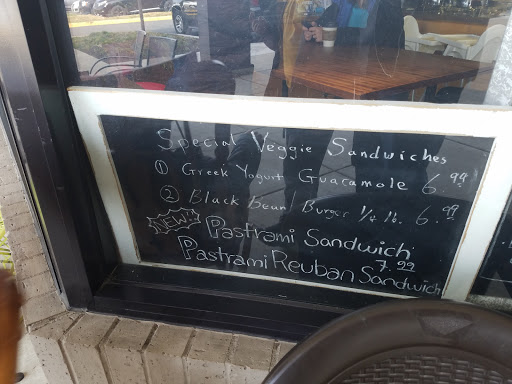 Special Veggie Sandwiches
① Greek Yogurt Guacamole 6.99
② Black bean Burger 1/4 lb. 6.99
NEW! Pastrami Sandwich
Pastrami Reuban Sandwich 7.99